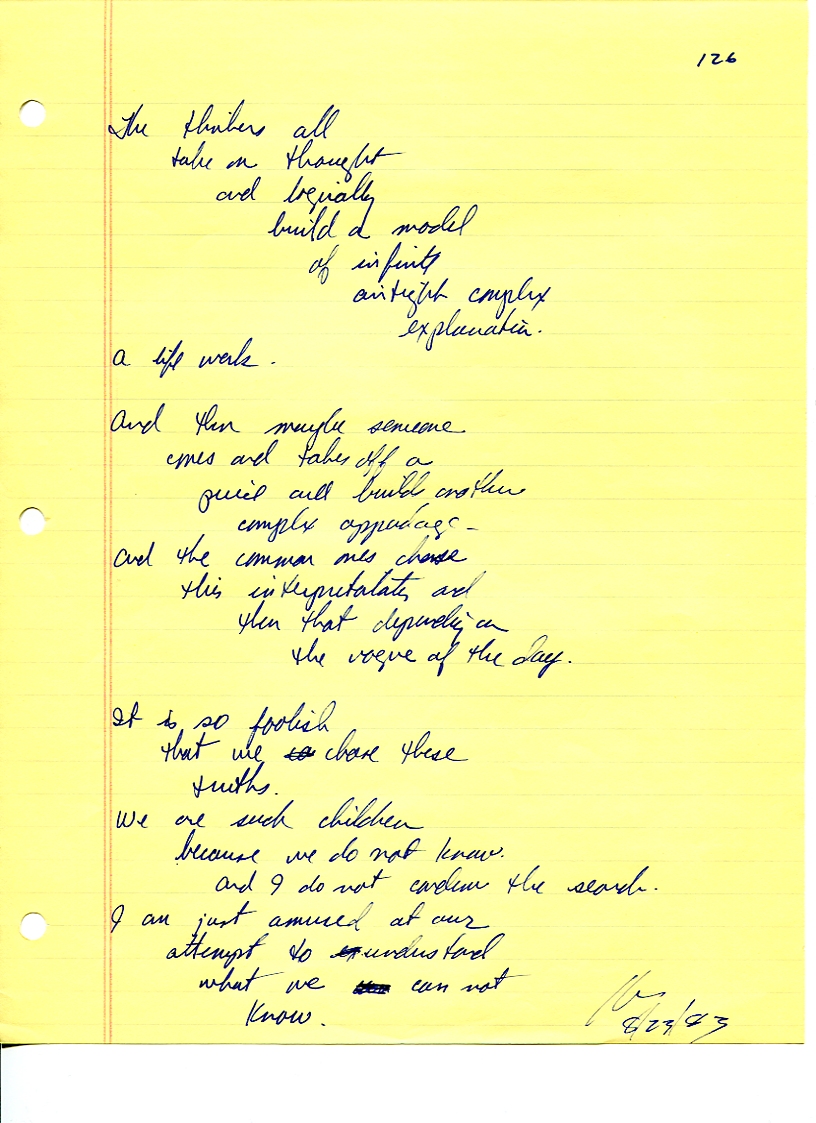 126
The thinkers all
take on thought
and logically
build a model
of infinite
airtight complex
explanation.
A life work.
And then maybe someone
comes and takes off a
piece and builds another
complex appendage -
and the common ones choose
this interpretation and
then that depending on
the vogue of the day.
It is so foolish
that we chase these
truths.
We are such children
because we do not know.
and I do not condem the search.
I am just amused at our
attempt to understand
what we can not
know.
8/23/83